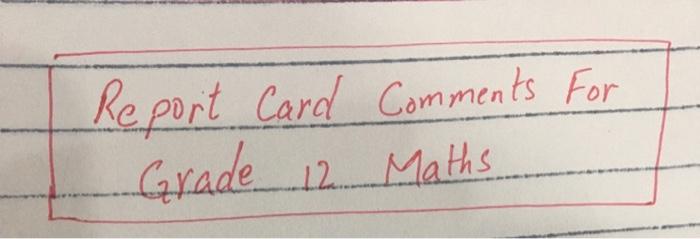 Report Card Comments For
Grade 12 Maths